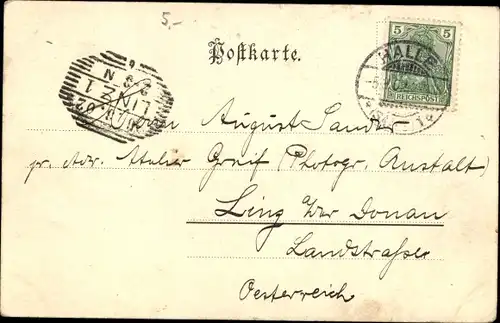 5,-
Postkarte.
5 5
REICHSPOST
HALLE
LINZ 1
2 8 N
02
August Sander
pr. Adr. Atelier Greif (Photogr. Anstalt)
Linz der Donau
Landstrasse
Oesterreich